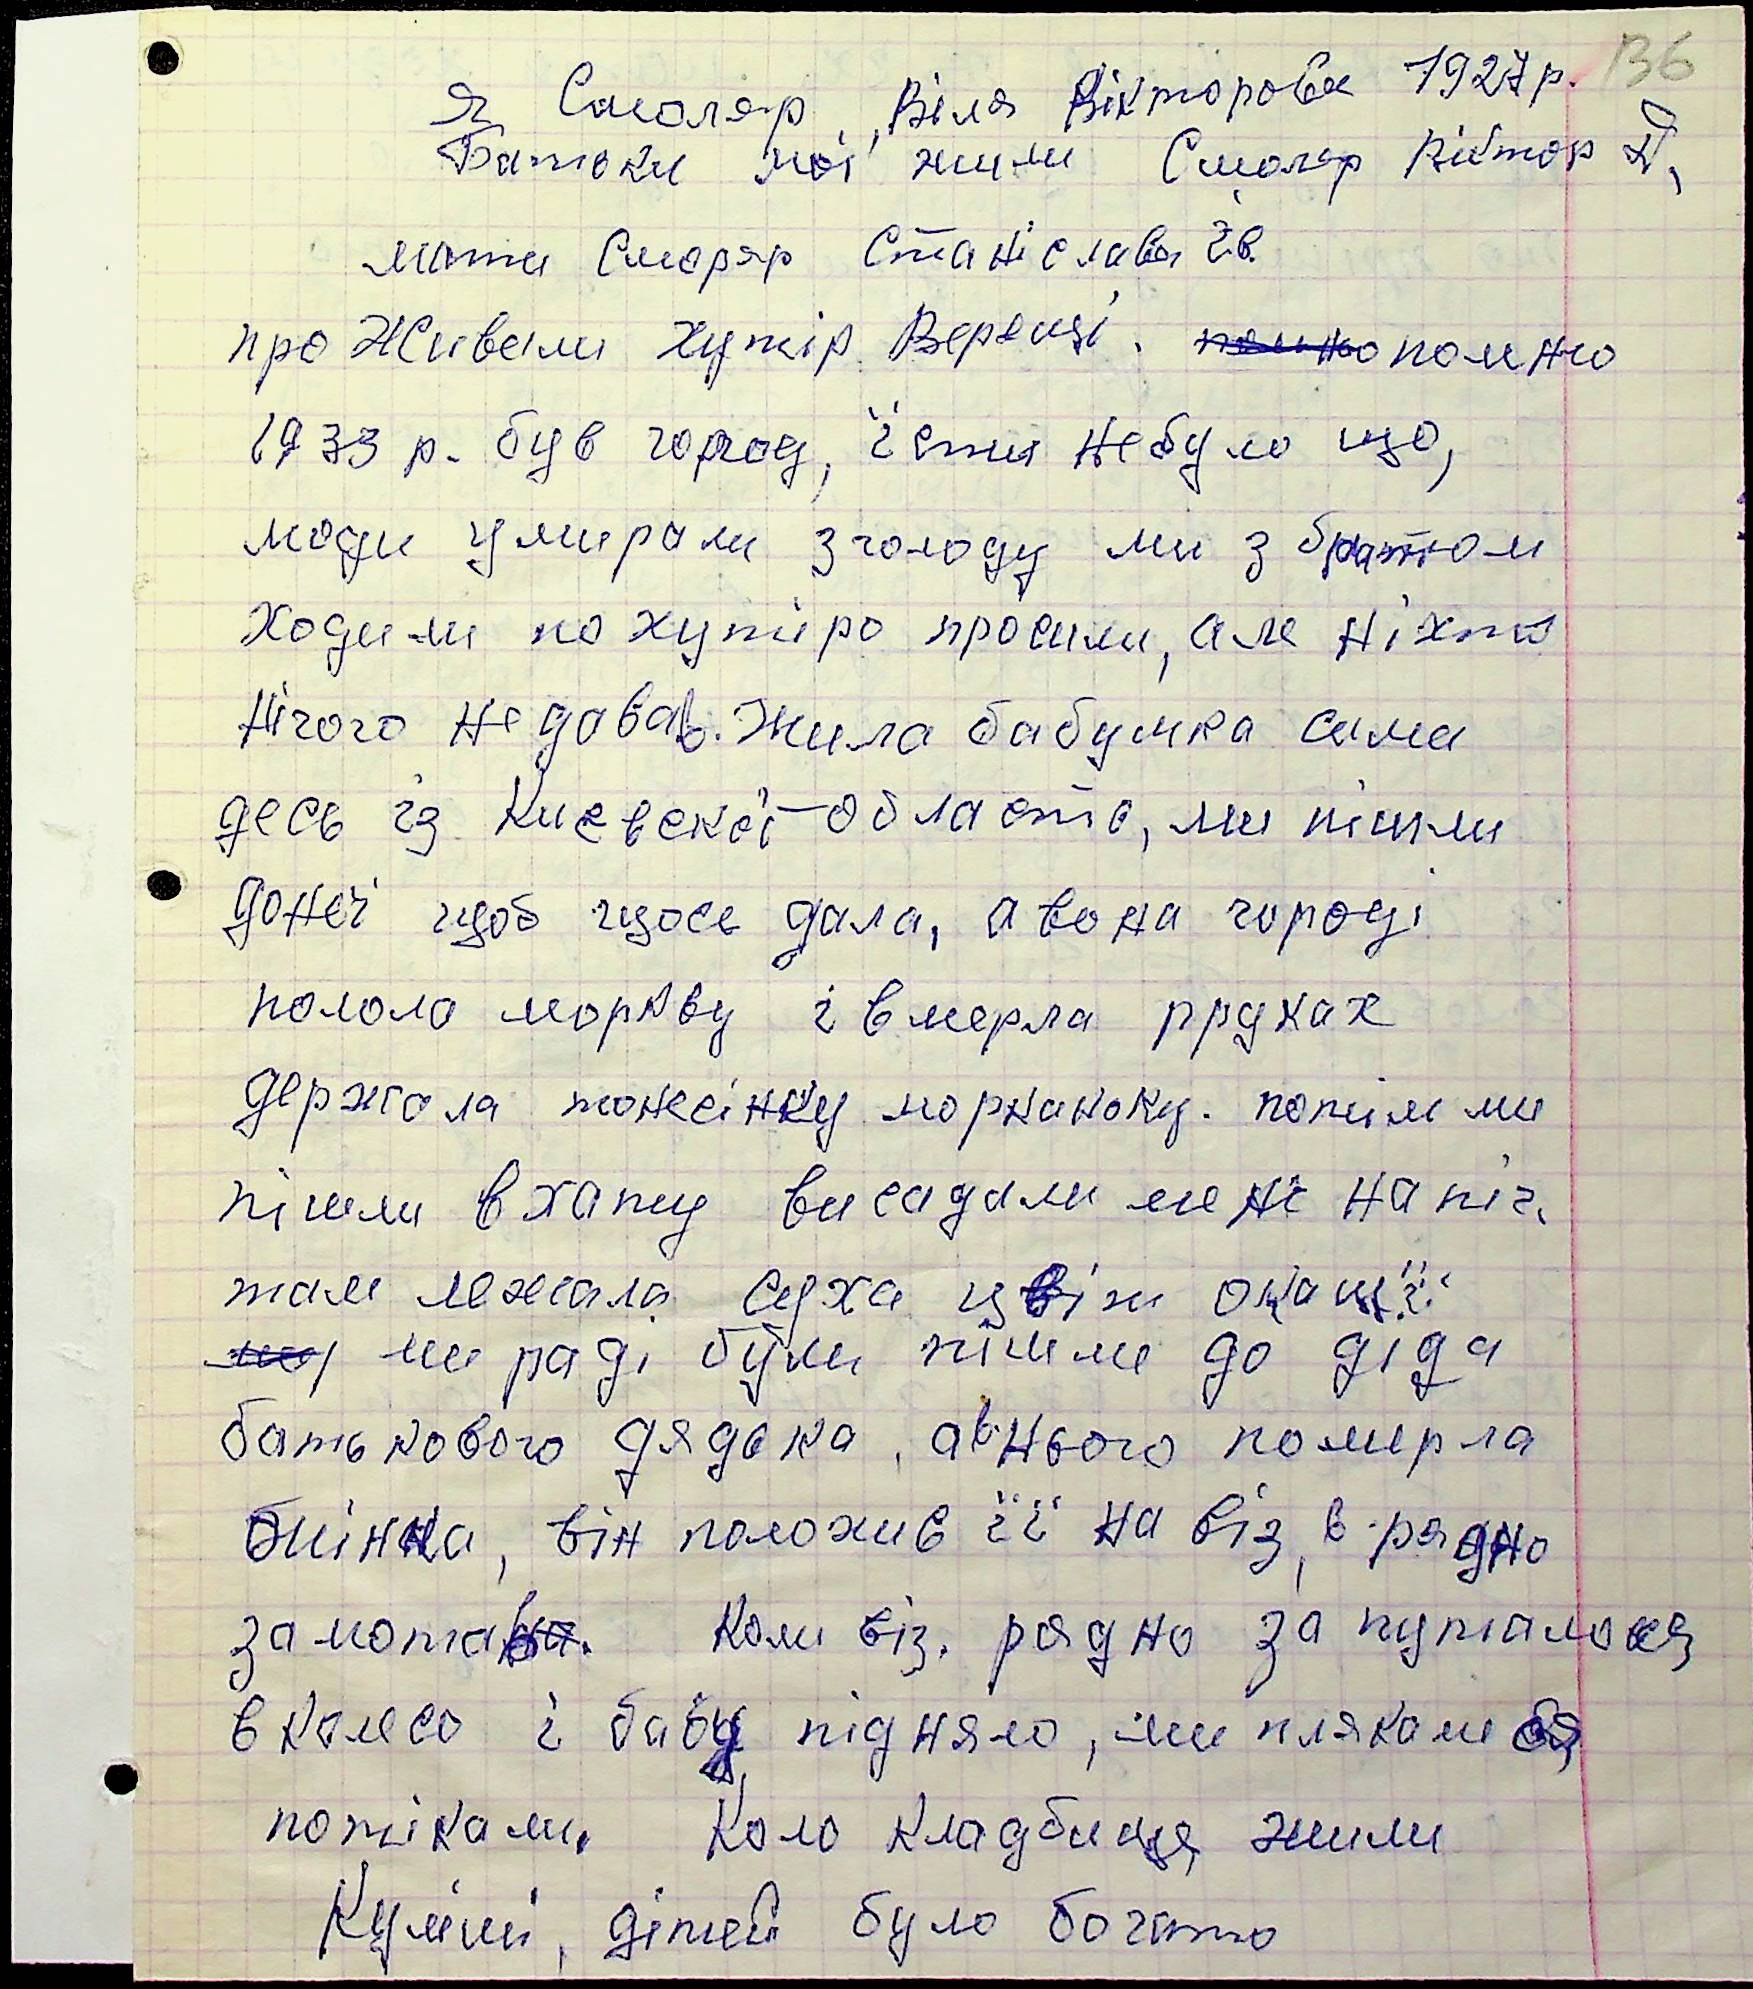 136
Я Смоляр, Віля Вікторова 1927 р.
Батьки мої жили Смоляр Віктор Д,
мати Сморяр Станіслава Ів.
про Живали хутір Веренці. помню
1933 р. був город, їсти небуло що,
люди умирали зголоду ми з братом
ходили по хутіро просили, але ніхто
нічого недавав. Жила бабушка сама
десь із Киевскої області, ми пішли
донеї щоб щось дала, а вона городі
полола моркву і вмерла рруках
держала тоненіньку морканьку. потім ми
пішли вхату висадили мені на піч.
там лежала суха цвіт окації
ми раді були пішли до діда
батькового дядька, авнього померла
жінка, він положив її на віз, в рядно
замотав. Коли віз. рядно запуталося
вколесо і бабу підняло, ми плякалися
потікали. Коло кладбища жили
діти було богато